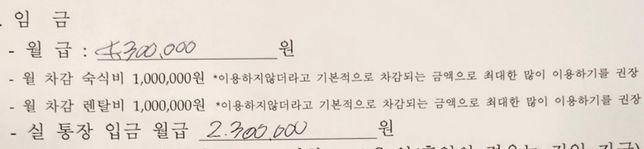 . 임 금
- 월 급 : 4,300,000 원
- 월 차감 숙식비 1,000,000원 *이용하지않더라고 기본적으로 차감되는 금액으로 최대한 많이 이용하기를 권장
- 월 차감 렌탈비 1,000,000원 *이용하지않더라고 기본적으로 차감되는 금액으로 최대한 많이 이용하기를 권장
- 실 통장 입금 월급 2.300,000 원